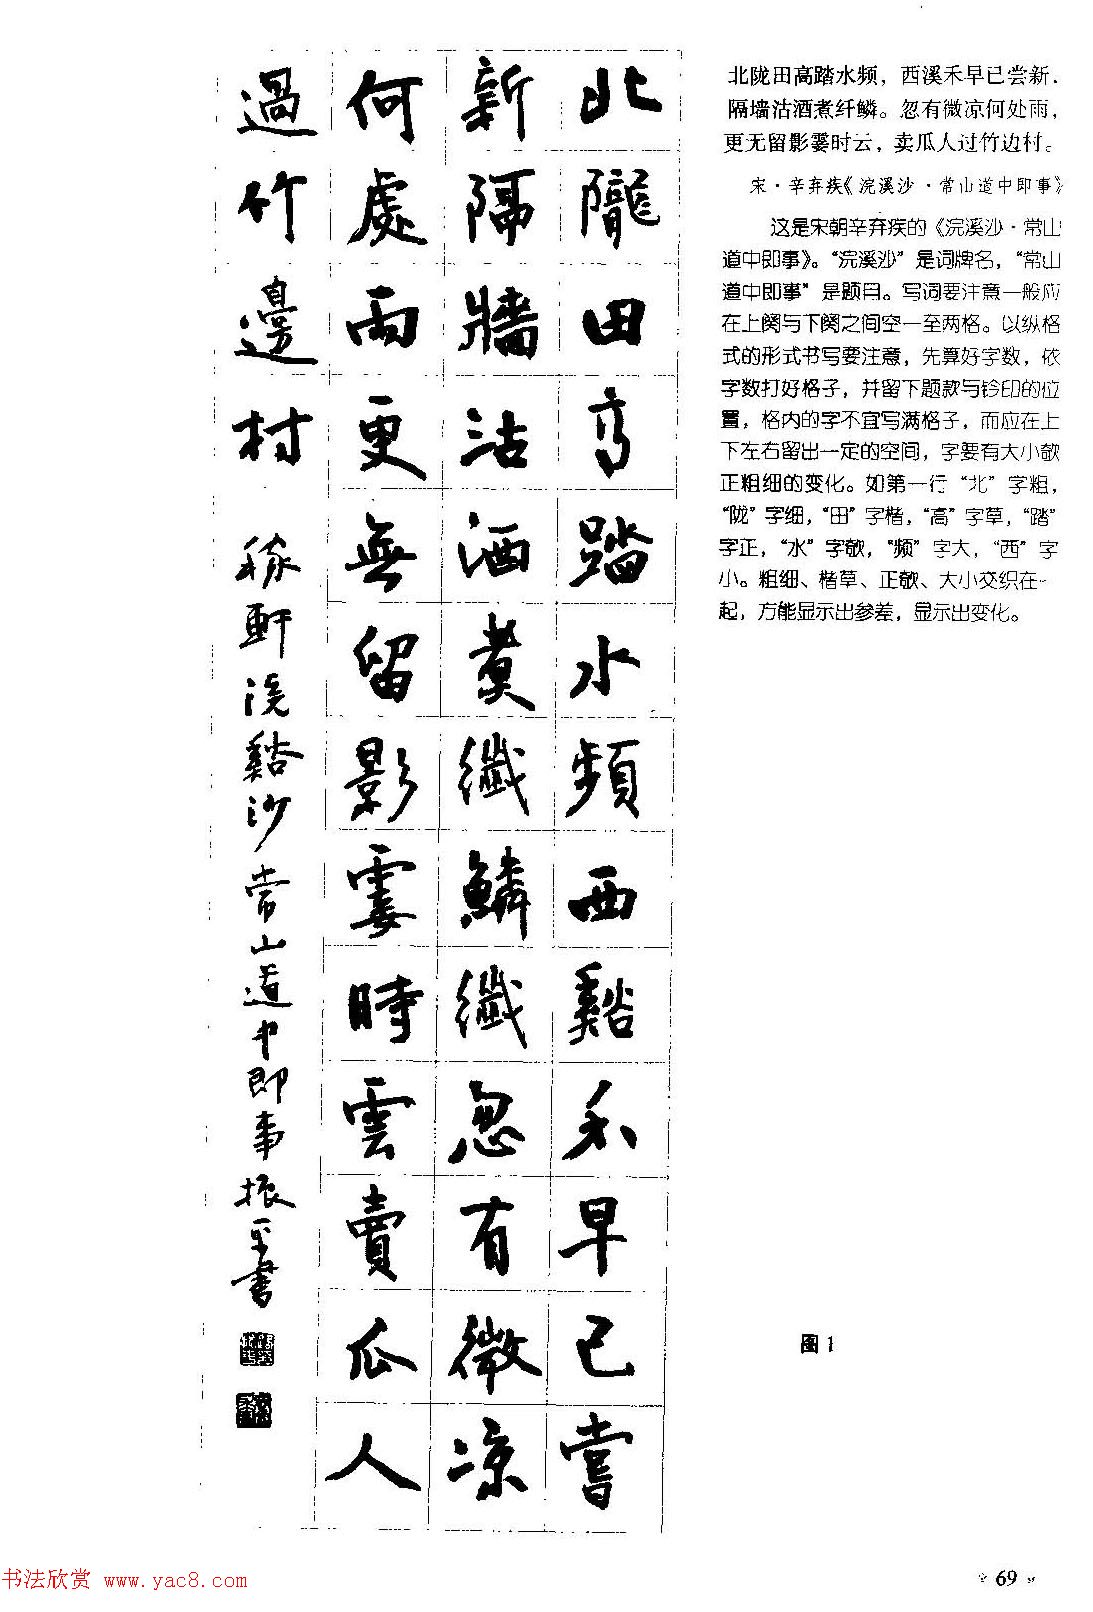 北陇田高踏水频，西溪禾早已尝新.
隔墙沽酒煮纤鳞。忽有微凉何处雨，
更无留影霎时云，卖瓜人过竹边村。
宋·辛弃疾《浣溪沙·常山道中即事》
这是宋朝辛弃疾的《浣溪沙·常山
道中即事》。“浣溪沙”是词牌名，“常山
道中即事”是题目。写词要注意一般应
在上阕与下阕之间空一至两格。以纵格
式的形式书写要注意，先算好字数，依
字数打好格子，并留下题款与钤印的位
置，格内的字不宜写满格子，而应在上
下左右留出一定的空间，字要有大小欹
正粗细的变化。如第一行“北”字粗，
“陇”字细，“田”字楷，“高”字草，“踏”
字正，“水”字欹，“频”字大，“西”字
小。粗细、楷草、正欹、大小交织在一
起，方能显示出参差，显示出变化。
北隴田高踏水頻西谿禾早已嘗
新隔牆沽酒煮纖鱗纖忽有微涼
何處雨更無留影霎時雲賣瓜人
過竹邊村 稼軒浣谿沙常山道中即事振平書
图1
书法欣赏 www.yac8.com
69